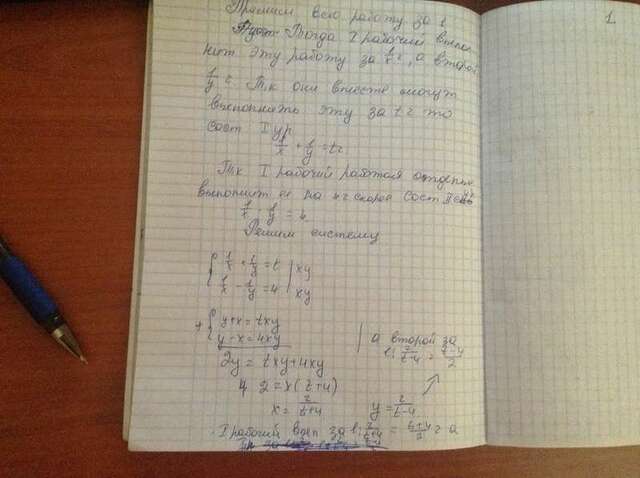 1.
Примем всю работу за 1
Тогда I рабочий выпол
нит эту работу за 1/x ч, а второй
1/y ч Т.к они вместе могут
выполнять эту за t ч то
сост I ур
1/x + 1/y = t ч
Т.к I рабочий работая отдельно
выполнит ее на 4 ч скорее сост II
1/x - 1/y = 4
Решим систему
{ 1/x + 1/y = t | xy
1/x - 1/y = 4 | xy
+ { y+x = txy
y-x = 4xy
2y = txy+4xy
2 = x(t+4)
x = 2/t+4
y = 2/t-4
а второй за
1: 2/t-4 = t-4/2
I рабочий вып за 1: 2/t+4 = t+4/2 ч а